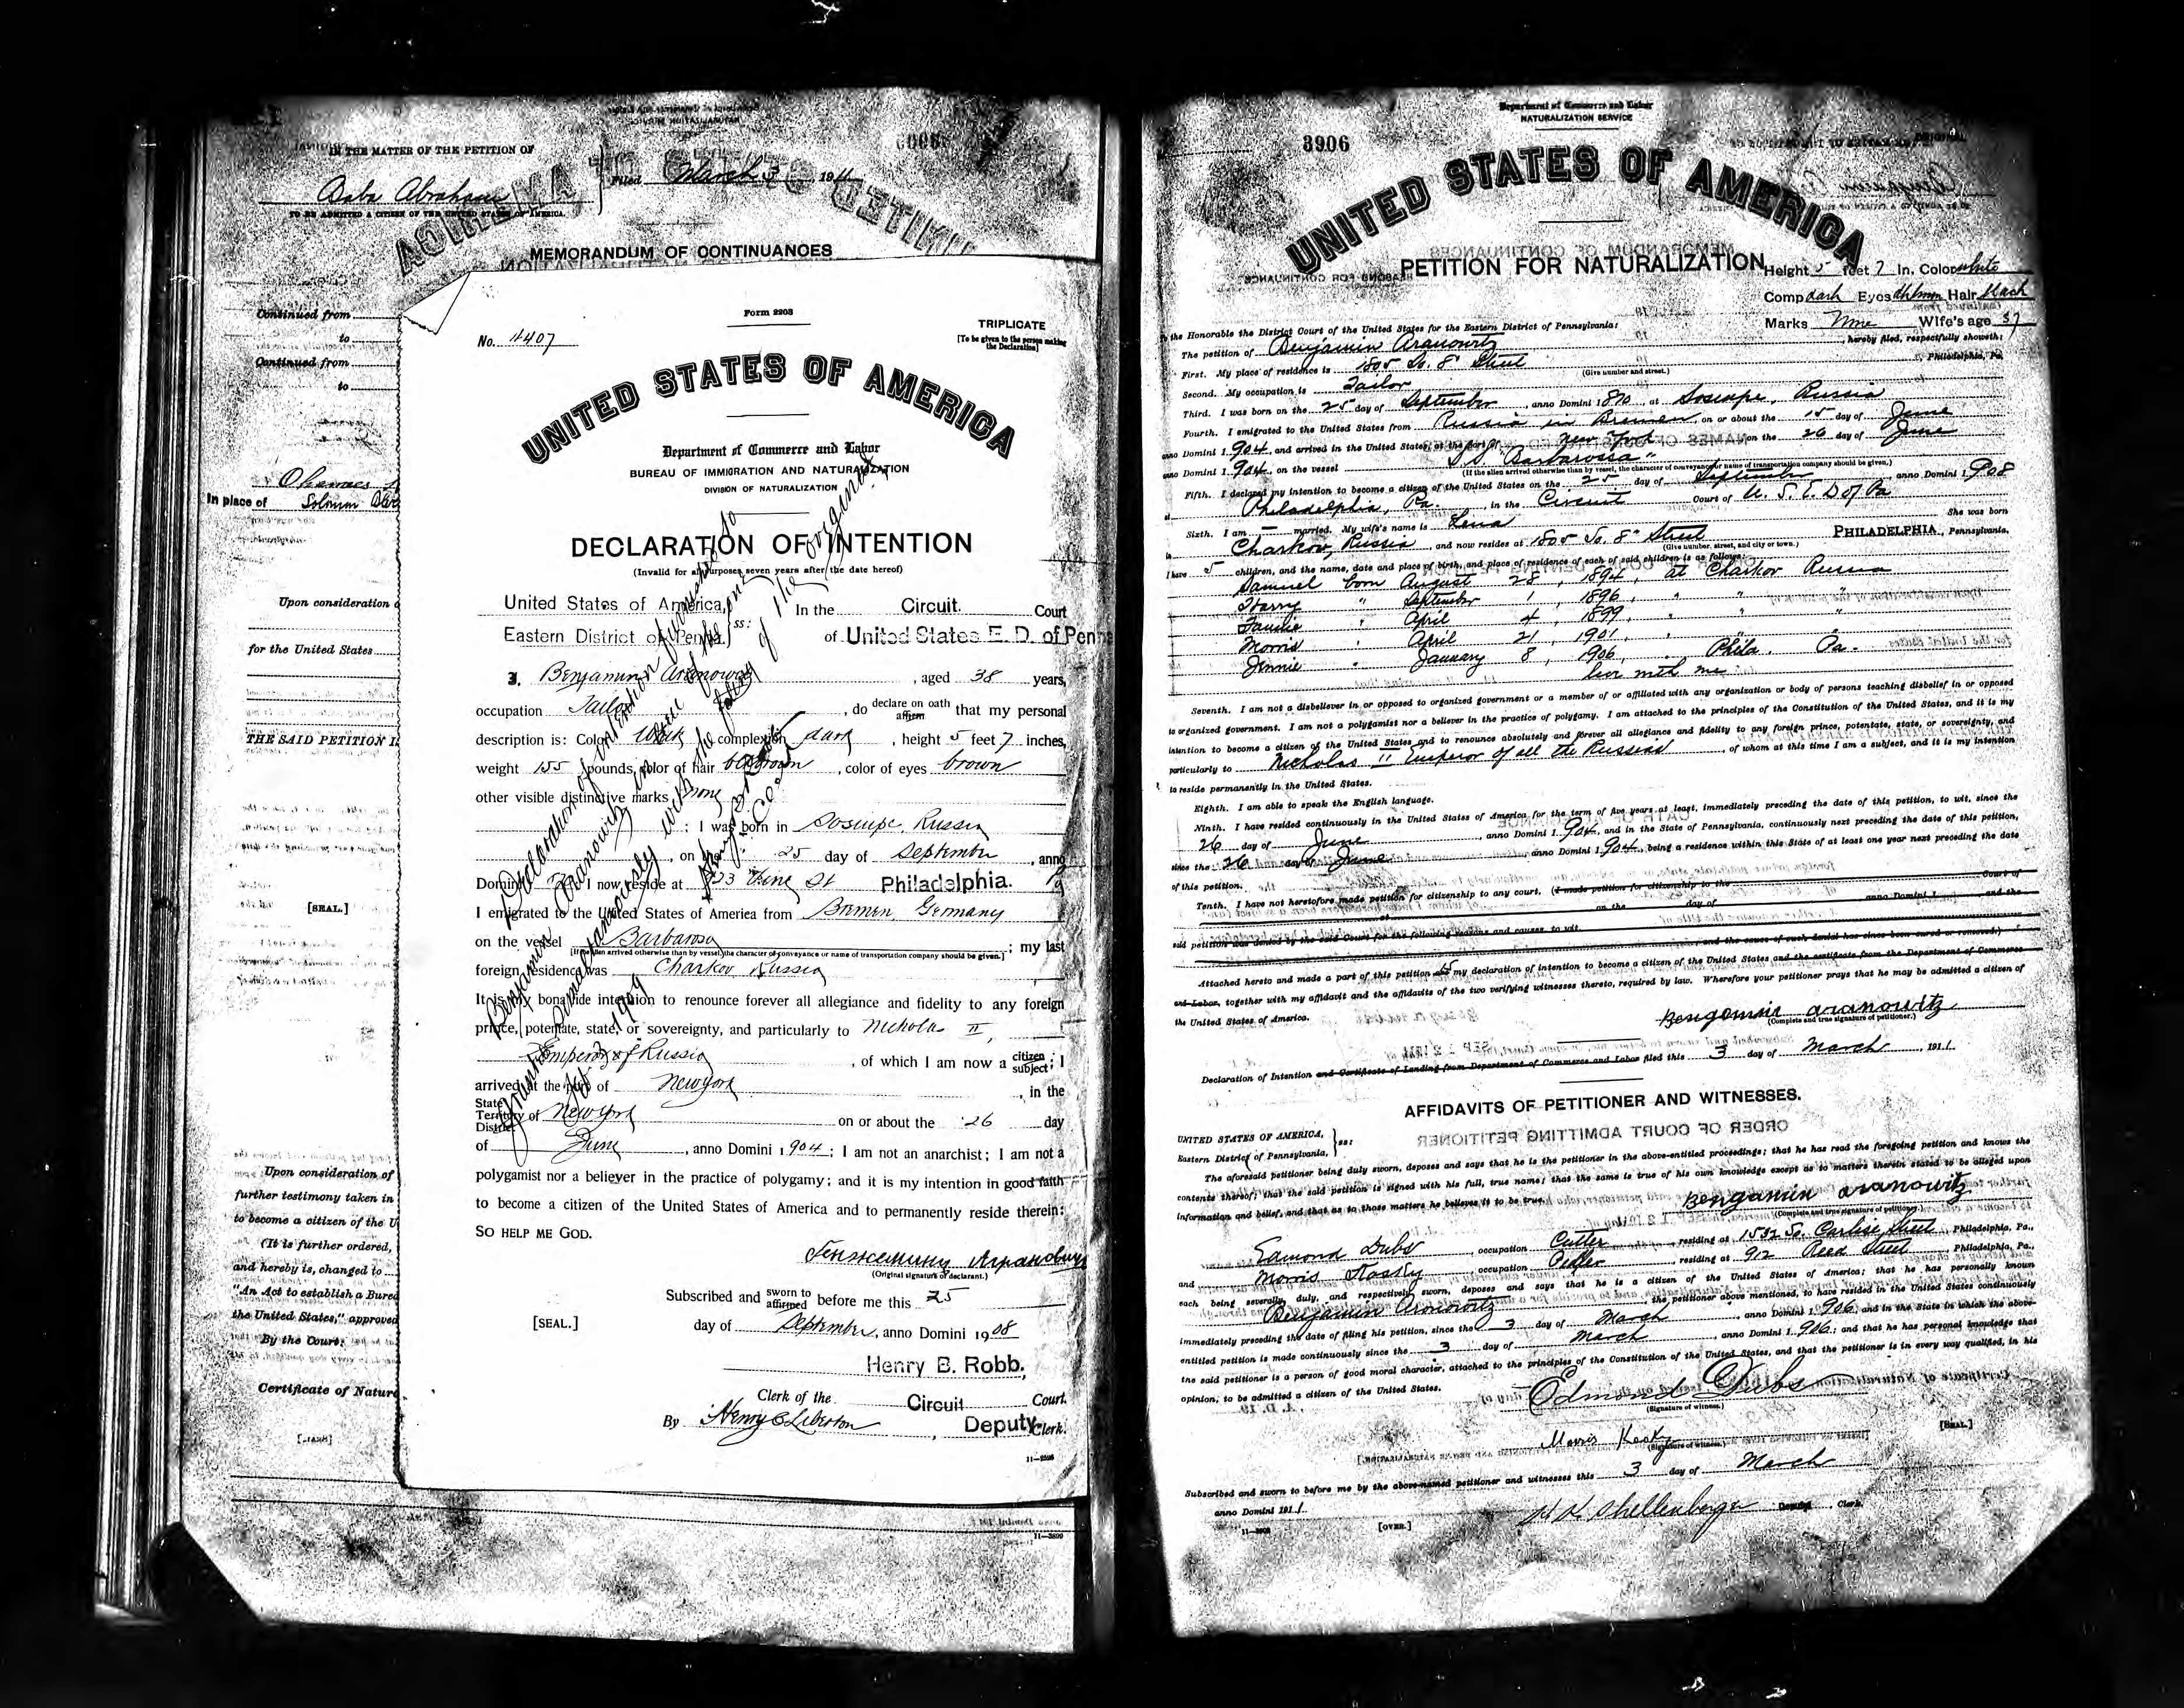 IN THE MATTER OF THE PETITION OF
Baba Abraham
TO BE ADMITTED A CITIZEN OF THE UNITED STATES OF AMERICA.
Filed March 3, 1911
MEMORANDUM OF CONTINUANCES
Continued from
to
Continued from
to
In place of Solomon
Upon consideration
for the United States
THE SAID PETITION I
[SEAL.]
Upon consideration of
further testimony taken in
to become a citizen of the U
(It is further ordered,
and hereby is, changed to
"An Act to establish a Bure
the United States," approved
By the Court:
Certificate of Natur
11—3800
Form 2203
No. 4407
TRIPLICATE
[To be given to the person making the Declaration]
UNITED STATES OF AMERICA
Department of Commerce and Labor
BUREAU OF IMMIGRATION AND NATURALIZATION
DIVISION OF NATURALIZATION
DECLARATION OF INTENTION
(Invalid for all purposes seven years after the date hereof)
United States of America, In the Circuit. Court
Eastern District of Penna. ss: of United States E. D. of Penna
I, Benjamin Aranowitz, aged 38 years,
occupation Tailor, do declare on oath affirm that my personal
description is: Color White, complexion dark, height 5 feet 7 inches,
weight 155 pounds, color of hair brown, color of eyes brown
other visible distinctive marks none
: I was born in Sosuipe, Russia
, on the 25 day of September, anno
Domini I now reside at 723 Pine St Philadelphia. Pa
I emigrated to the United States of America from Bremen, Germany
on the vessel Barbarosa; my last
[If the alien arrived otherwise than by vessel, the character of conveyance or name of transportation company should be given.]
foreign residence was Charkov Russia
It is my bona fide intention to renounce forever all allegiance and fidelity to any foreign
prince, potentate, state, or sovereignty, and particularly to Nicholas II,
Emperor of Russia, of which I am now a citizen subject; I
arrived at the port of New York, in the
State Territory District of New York on or about the 26 day
of June, anno Domini 1904; I am not an anarchist; I am not a
polygamist nor a believer in the practice of polygamy; and it is my intention in good faith
to become a citizen of the United States of America and to permanently reside therein:
SO HELP ME GOD.
(Original signature of declarant.)
Subscribed and sworn to affirmed before me this 25
[SEAL.] day of September, anno Domini 1908
Henry B. Robb,
Clerk of the Circuit Court.
By Henry C Liberton, Deputy Clerk.
Declaration of intention furnished to
Benjamin Aranowitz in lieu of the one
1909
3906
Department of Commerce and Labor
NATURALIZATION SERVICE
ORIGINAL
UNITED STATES OF AMERICA
PETITION FOR NATURALIZATION
Height 5 feet 7 In. Color white
Comp dark Eyes dk brown Hair black
Marks None Wife's age 37
To the Honorable the District Court of the United States for the Eastern District of Pennsylvania:
The petition of Benjamin Aranowitz, hereby filed, respectfully showeth:
First. My place of residence is 1805 So. 8" Street, Philadelphia, Pa.
(Give number and street.)
Second. My occupation is Tailor
Third. I was born on the 25 day of September, anno Domini 1870, at Sosuipe, Russia
Fourth. I emigrated to the United States from Russia via Bremen, on or about the 15 day of June
anno Domini 1904, and arrived in the United States, at the port of New York on the 26 day of June
anno Domini 1904, on the vessel SS "Barbarossa"
(If the alien arrived otherwise than by vessel, the character of conveyance or name of transportation company should be given.)
Fifth. I declared my intention to become a citizen of the United States on the 25 day of September anno Domini 1908
at Philadelphia, Pa., in the Circuit Court of U. S. E. D of Pa
Sixth. I am — married. My wife's name is Lena She was born
in Charkov, Russia, and now resides at 1805 So. 8" Street PHILADELPHIA, Pennsylvania,
(Give number, street, and city or town.)
I have 5 children, and the name, date and place of birth, and place of residence of each of said children is as follows:
Samuel born August 28, 1894, at Charkov Russia
Harry " September 1, 1896, " " "
Fannie " April 4, 1899, " " "
Morris " April 21, 1901, " " "
Jennie " January 8, 1906, " Phila. Pa.
live with me
Seventh. I am not a disbeliever in or opposed to organized government or a member of or affiliated with any organization or body of persons teaching disbelief in or opposed
to organized government. I am not a polygamist nor a believer in the practice of polygamy. I am attached to the principles of the Constitution of the United States, and it is my
intention to become a citizen of the United States and to renounce absolutely and forever all allegiance and fidelity to any foreign prince, potentate, state, or sovereignty, and
particularly to Nicholas II Emperor of all the Russias, of whom at this time I am a subject, and it is my intention
to reside permanently in the United States.
Eighth. I am able to speak the English language.
Ninth. I have resided continuously in the United States of America for the term of five years at least, immediately preceding the date of this petition, to wit, since the
26 day of June, anno Domini 1904, and in the State of Pennsylvania, continuously next preceding the date of this petition,
since the 26 day of June, anno Domini 1904, being a residence within this State of at least one year next preceding the date
of this petition.
Tenth. I have not heretofore made petition for citizenship to any court. (I made petition for citizenship to the Court of
on the day of anno Domini 1 and the
said petition was denied by the said Court for the following reasons and causes, to wit,
, and the cause of such denial has since been cured or removed.)
Attached hereto and made a part of this petition is my declaration of intention to become a citizen of the United States and the certificate from the Department of Commerce
and Labor, together with my affidavit and the affidavits of the two verifying witnesses thereto, required by law. Wherefore your petitioner prays that he may be admitted a citizen of
the United States of America.
Bengamin aranowitz
(Complete and true signature of petitioner.)
Declaration of Intention and Certificate of Landing from Department of Commerce and Labor filed this 3 day of March, 1911
AFFIDAVITS OF PETITIONER AND WITNESSES.
UNITED STATES OF AMERICA,
Eastern District of Pennsylvania, ss:
The aforesaid petitioner being duly sworn, deposes and says that he is the petitioner in the above-entitled proceedings; that he has read the foregoing petition and knows the
contents thereof; that the said petition is signed with his full, true name; that the same is true of his own knowledge except as to matters therein stated to be alleged upon
information and belief, and that as to those matters he believes it to be true.
Bengamin aranowitz
(Complete and true signature of petitioner.)
Edmond Dubs, occupation Cutter, residing at 1532 So. Carlise Street, Philadelphia, Pa.,
and Morris, occupation Pedler, residing at 912 Reed Street, Philadelphia, Pa.,
each being severally, duly, and respectively sworn, deposes and says that he is a citizen of the United States of America; that he has personally known
Benjamin Aranowitz, the petitioner above mentioned, to have resided in the United States continuously
immediately preceding the date of filing his petition, since the 3 day of March, anno Domini 1906, and in the State in which the above-
entitled petition is made continuously since the 3 day of March, anno Domini 1906; and that he has personal knowledge that
the said petitioner is a person of good moral character, attached to the principles of the Constitution of the United States, and that the petitioner is in every way qualified, in his
opinion, to be admitted a citizen of the United States.
Edmond Dubs
(Signature of witness.)
Morris
(Signature of witness.)
[SEAL.]
Subscribed and sworn to before me by the above-named petitioner and witnesses this 3 day of March
anno Domini 1911.
W. W. Shellenberger Deputy Clerk.
[OVER.]